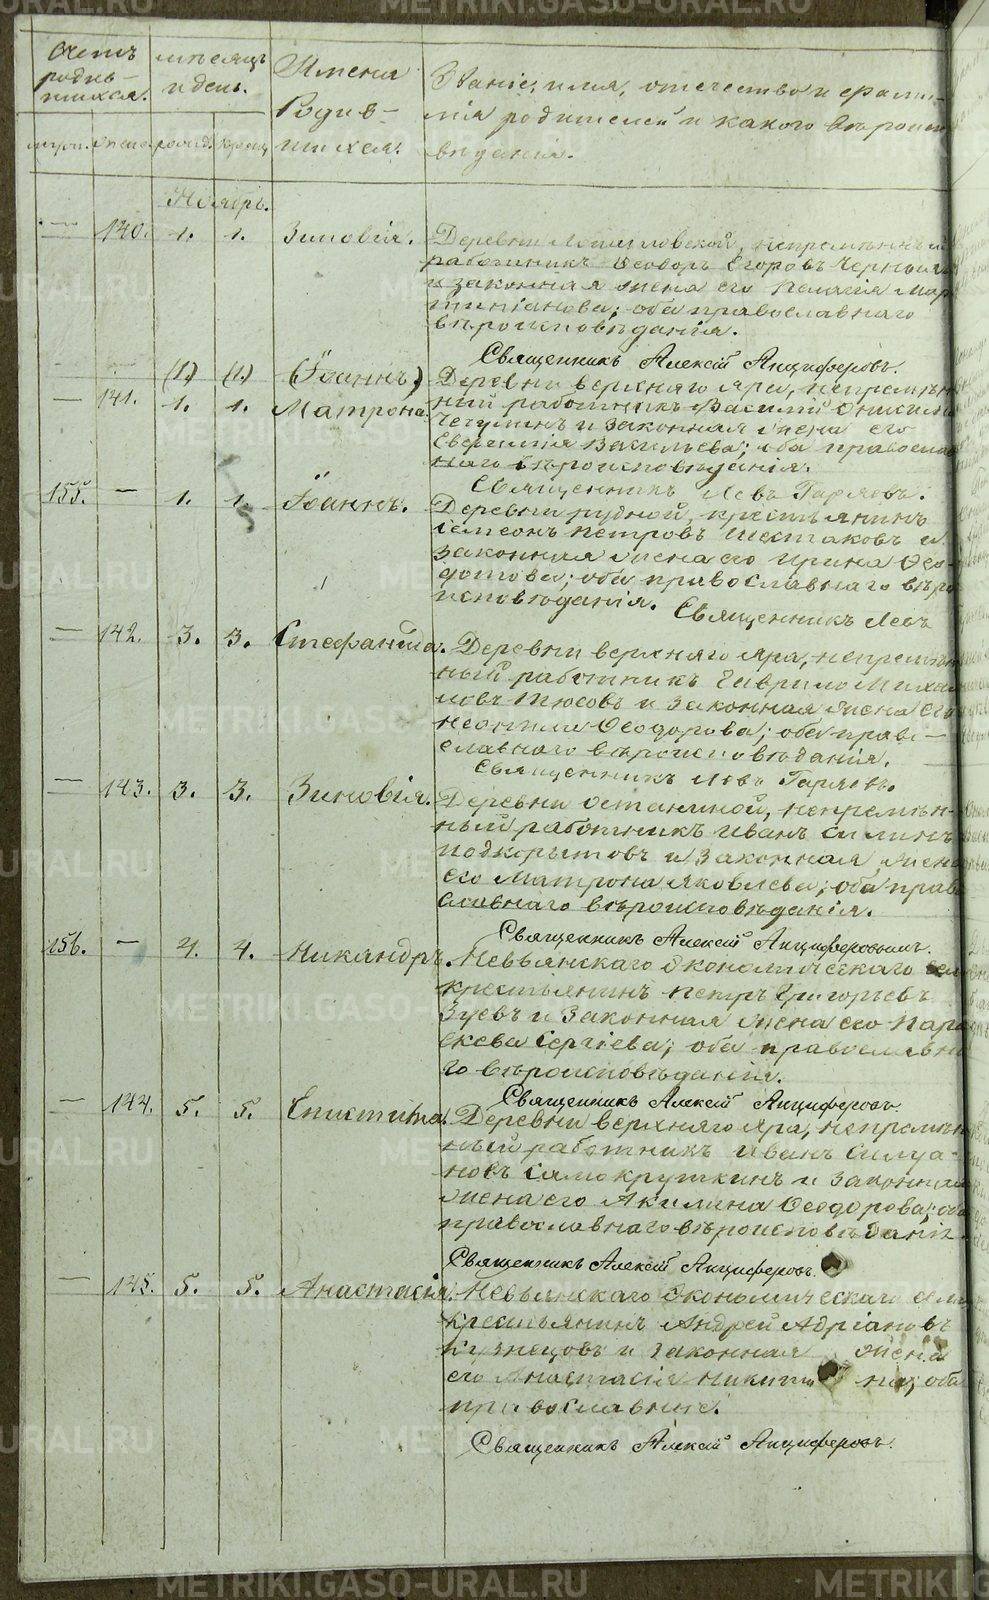 METRIKI.GASO-URAL.RU
Счетъ родив- шихся.
мѣсяцъ и день.
Имена Родив- шихся.
Званіе, имя, отечество и фами-
лія родителей и какого вѣроис-
вѣданія.
муж. женс. рожд. крещ.
Ноябрь.
— 140. 1. 1. Зиновія. Деревни непремѣнный
работникъ Ѳеодоръ Егоровъ
и законная жена его Пелагія Мар
тиніанова; оба православнаго
вѣроисповѣданія.
Священникъ Алексій Анциферовъ.
(1.) (1.) (Іоаннъ)
— 141. 1. 1. Матрона. Деревни верхняго Яра, непремѣн
ный работникъ Василій Онисимовъ
и законная жена его
Евфимія Васильева; оба православ
наго вѣроисповѣданія.
Священникъ Левъ Гаряевъ.
155. — 1. 1. Іоаннъ. Деревни рудной, крестьянинъ
Симеонъ Петровъ Шестаковъ и
законная жена его Ирина Ѳео-
дотова; оба православнаго вѣро
исповѣданія. Священникъ Левъ
— 142. 3. 3. Стефанида. Деревни верхняго Яра, непремѣн
ный работникъ Гаврило Михай
ловъ и законная жена его
Неонила Ѳеодорова; оба право-
славнаго вѣроисповѣданія.
Священникъ Левъ Гаряевъ.
— 143. 3. 3. Зиновія. Деревни останиной, непремѣн-
ный работникъ Иванъ Силинъ
Подкорытовъ и законная жена
его Матрона Яковлева; оба право
славнаго вѣроисповѣданія.
Священникъ Алексій Анциферовымъ.
156. — 4. 4. Никандръ. Невьянскаго экономическаго села
крестьянинъ Петръ Григорьевъ
Зуевъ и законная жена его Пара
скева Сергіева; оба православна
го вѣроисповѣданія.
Священникъ Алексій Анциферовъ.
— 144. 5. 5. Епистима. Деревни верхняго Яра, непремѣн
ный работникъ Иванъ Силуа-
новъ Самокруткинъ и законная
жена его Акилина Ѳеодорова; оба
православнаго вѣроисповѣданія.
Священникъ Алексій Анциферовъ.
— 145. 5. 5. Анастасія. Невьянскаго экономическаго села
крестьянинъ Андрей Адріановъ
Кузнецовъ и законная жена
его Анастасія Никитина; оба
православные.
Священникъ Алексій Анциферовъ.
METRIKI.GASO-URAL.RU